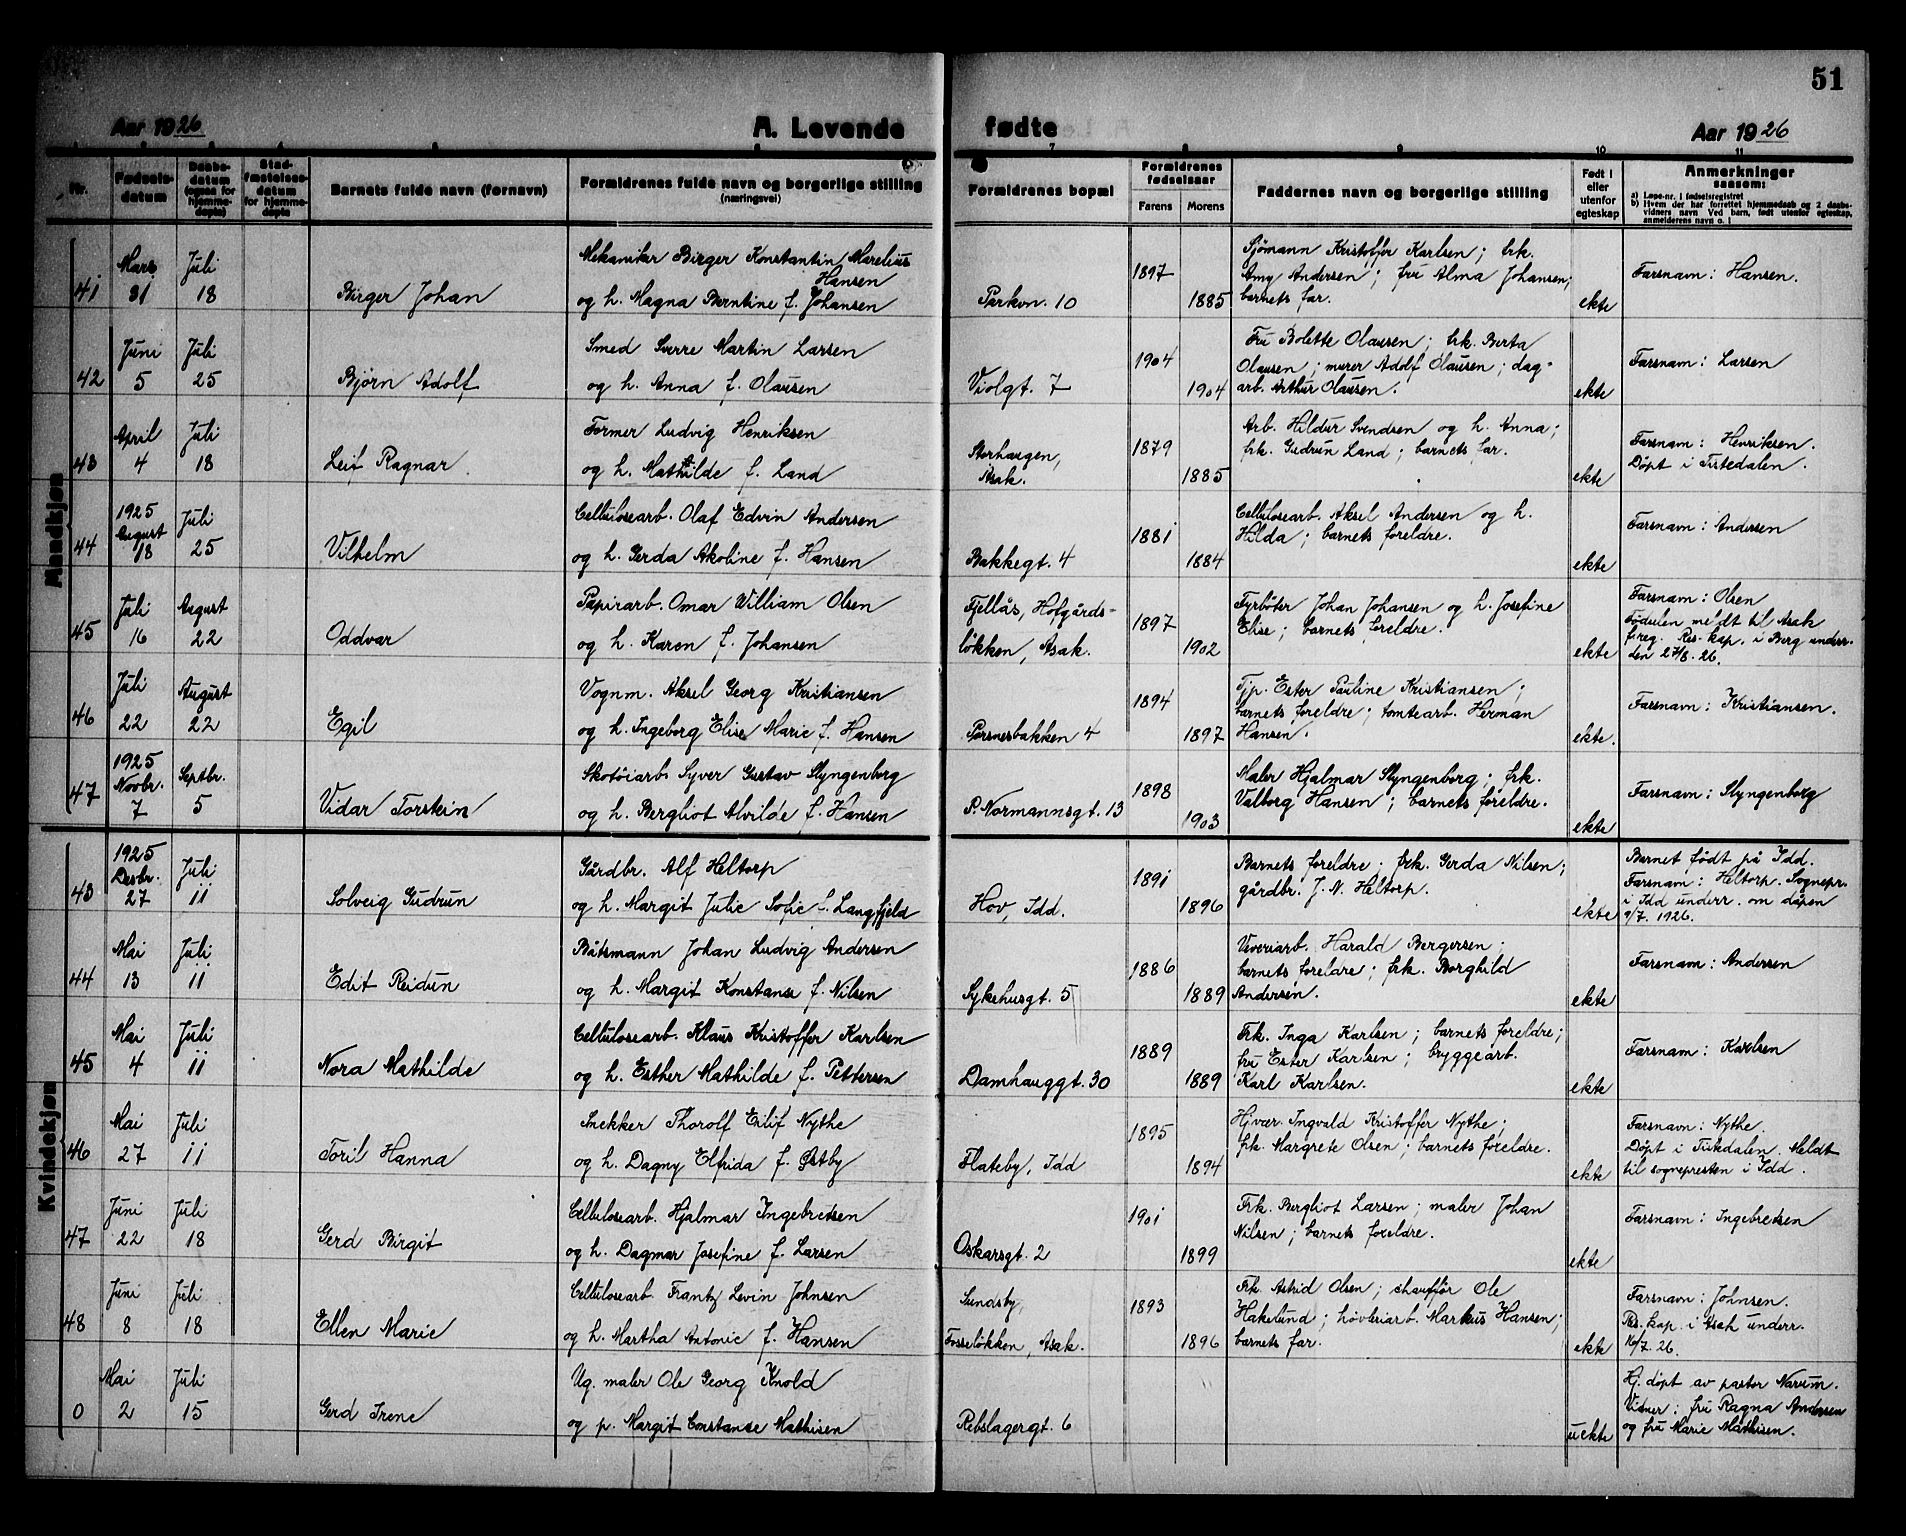 51
Aar 1926 A. Levende fødte Aar 1926
7 8 9 10 11
Nr. Fødsels-datum Daabs-datum (ogsaa for hjemme-døpte) Stad-fæstelses-datum for hjemme-døpte Barnets fulde navn (fornavn) Forældrenes fulde navn og borgerlige stilling (næringsvei) Forældrenes bopæl Forældrenes fødselsaar Farens Morens Faddernes navn og borgerlige stilling Født i eller utenfor egteskap Anmerkninger saasom:
a) Løpe-nr. i fødselsregistret
b) Hvem der har forrettet hjemmedaab og 2 daabs-
vidners navn Ved barn, født utenfor egteskap,
anmelderens navn o. l
Mandkjøn
41 Mars 31 Juli 18 Birger Johan
Mekaniker Birger Konstantin Marelius Hansen
og h. Magna Berntine f. Johansen
Parkvn. 10 1897 1885
Sjømann Kristoffer Karlsen; frk.
Amy Andersen; fru Alma Johansen;
barnets far.
ekte
Farsnavn: Hansen.
42 Juni 5 Juli 25 Bjørn Adolf
Smed Sverre Martin Larsen
og h. Anna f. Olausen
Violgt. 7 1904 1904
Fru Bolette Olausen; frk. Berta
Olausen; murer Adolf Olausen; dag-
arb. Arthur Olausen.
ekte
Farsnavn: Larsen
43 April 4 Juli 18 Leif Ragnar.
Former Ludvig Henriksen
og h. Mathilde f. Land
Storhaugen,
Asak.
1879 1885
Arb. Hildur Svendsen og h. Anna;
frk. Gudrun Land; barnets far.
ekte
Farsnam: Henriksen.
Døpt i Tistedalen.
44 1925 August 18 Juli 25 Vilhelm
Cellulosearb. Olaf Edvin Andersen
og h. Gerda Akoline f. Hansen
Bakkegt. 4 1881 1884
Cellulosearb. Aksel Andersen og h.
Hilda; barnets foreldre.
ekte
Farsnavn: Andersen
45 Juli 16 August 22 Oddvar
Papirarb. Omar William Olsen
og h. Karen f. Johansen
Fjellås, Hofgårds-
løkken, Asak.
1897 1902
Fyrbøter Johan Johansen og h. Josefine
Elise; barnets foreldre.
ekte
Farsnavn: Olsen
Fødselen meldt til Asak
f.reg. Res. kap. i Berg underr.
den 27/8. 26.
46 Juli 22 August 22 Egil
Vognm. Aksel Georg Kristiansen
og h. Ingeborg Elise Marie f. Hansen
Porsnesbakken 4 1894 1897
Tjp. Ester Pauline Kristiansen;
barnets foreldre; tomtearb. Herman
Hansen.
ekte.
Farsnavn: Kristiansen.
47 1925 Novbr. 7 Septbr. 5 Vidar Torstein
Skotøiarb. Syver Gustav Slyngenborg
og h. Bergliot Alvilde f. Hansen
P. Normannsgt. 13 1898 1903
Maler Hjalmar Slyngenborg; frk.
Valborg Hansen; barnets foreldre.
ekte
Farsnavn: Slyngenborg
Kvindekjøn
43 1925 Desbr. 27 Juli 11 Solveig Gudrun
Gårdbr. Alf Heltorp
og h. Margit Julie Sofie f. Langfjeld
Hov, Idd. 1891 1896
Barnets foreldre; frk. Gerda Nilsen;
gårdbr. J. N. Heltorp.
ekte
Barnet født på Idd.
Farsnavn: Heltorp. Sognepr.
i Idd underr. om dåpen
9/7. 1926.
44 Mai 13 Juli 11 Edit Reidun
Båtsmann Johan Ludvig Andersen
og h. Margit Konstanse f. Nilsen
Sykehusgt. 5 1886 1889
Veveriarb. Harald Bergersen;
barnets foreldre; frk. Borghild
Andersen.
ekte
Farsnavn: Andersen
45 Mai 4 Juli 11 Nora Mathilde
Cellulosearb. Klaus Kristoffer Karlsen
og h. Esther Mathilde f. Pettersen
Damhauggt. 30 1889 1889
Frk. Inga Karlsen; barnets foreldre;
fru Ester Karlsen; bryggearb.
Karl Karlsen.
ekte
Farsnam: Karlsen
46 Mai 27 Juli 11 Toril Hanna
Snekker Thorolf Eilif Nythe
og h. Dagny Elfrida f. Østby
Flateby, Idd 1895 1894
Hjvær. Ingvald Kristoffer Nythe;
frk. Margrete Olsen; barnets foreldre.
ekte
Farsnavn: Nythe.
Døpt i Tistedalen. Meldt
til sognepresten i Idd.
47 Juni 22 Juli 18 Gerd Birgit
Cellulosearb. Hjalmar Ingebretsen
og h. Dagmar Josefine f. Larsen
Oskarsgt. 2 1901 1899
Frk. Bergliot Larsen; maler Johan
Nilsen; barnets foreldre.
ekte
Farsnavn: Ingebretsen
48 Juni 8 Juli 18 Ellen Marie
Cellulosearb. Frantz Levin Johnsen
og h. Martha Antonie f. Hansen
Sundsby,
Fosseløkken, Asak.
1893 1896
Frk. Astrid Olsen; chauffør Ole
Hakelund; høvleriarb. Markus Hansen;
barnets far.
ekte
Farsnavn: Johnsen.
Res. kap. i Asak underr.
16/7. 26.
0 Mai 2 Juli 15 Gerd Irene
Ug. maler Ole Georg Knold
og p. Margit Constanse Mathisen
Rebslagergt. 6
uekte
Hj. døpt av pastor Narum.
Vitner: fru Ragna Andersen
og fru Marie Mathisen.